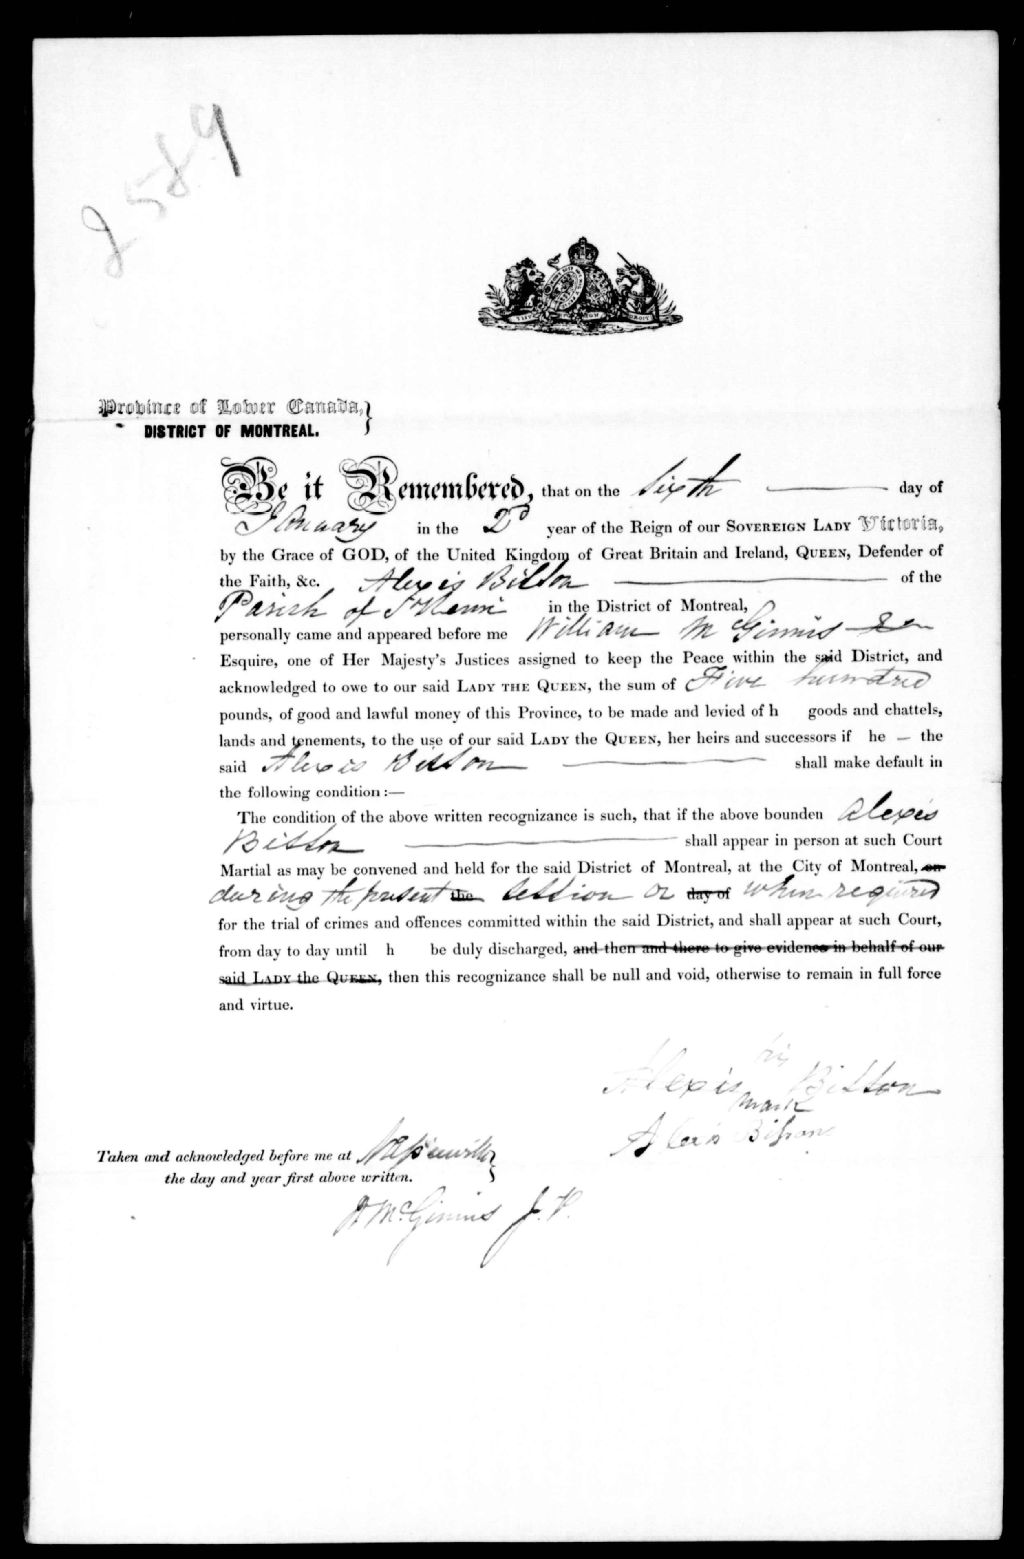 2589
Province of Lower Canada,
DISTRICT OF MONTREAL.
Be it Remembered, that on the Sixth day of
January in the 2d year of the Reign of our SOVEREIGN LADY Victoria,
by the Grace of GOD, of the United Kingdom of Great Britain and Ireland, QUEEN, Defender of
the Faith, &c. Alexis Bisson of the
Parish of St Remi in the District of Montreal,
personally came and appeared before me William McGinnis
Esquire, one of Her Majesty's Justices assigned to keep the Peace within the said District, and
acknowledged to owe to our said LADY THE QUEEN, the sum of Five hundred
pounds, of good and lawful money of this Province, to be made and levied of h goods and chattels,
lands and tenements, to the use of our said LADY the QUEEN, her heirs and successors if he — the
said Alexis Bisson shall make default in
the following condition :—
The condition of the above written recognizance is such, that if the above bounden Alexis
Bisson shall appear in person at such Court
Martial as may be convened and held for the said District of Montreal, at the City of Montreal, on
during the present the Session or day of when required
for the trial of crimes and offences committed within the said District, and shall appear at such Court,
from day to day until h be duly discharged, and then and there to give evidence in behalf of our
said LADY the QUEEN, then this recognizance shall be null and void, otherwise to remain in full force
and virtue.
his
Alexis Bisson
mark
Alexis Bisson
Taken and acknowledged before me at Napierville
the day and year first above written.
W McGinnis J.P.